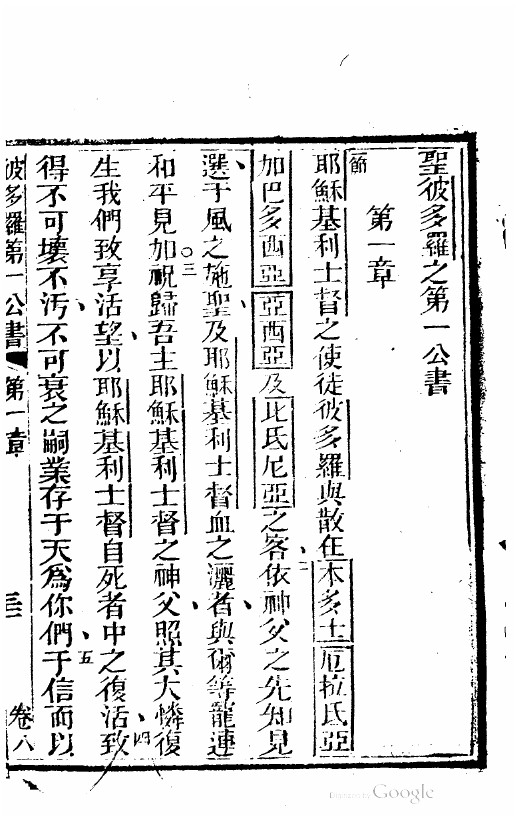 聖彼多羅之第一公書
第一章
節
耶穌基利士督之使徒彼多羅與散在本多士厄拉氏亞
加巴多西亞亞西亞及比氏尼亞之客二依神父之先知見
選于風之施聖及耶穌基利士督血之灑者與爾等寵連
和平見加○三祝歸吾主耶穌基利士督之神父照其大憐復
生我們致享活望以耶穌基利士督自死者中之復活四致
得不可壞不汚不可衰之嗣業存于天為你們五于信而以
彼多羅第一公書 第一章 三 卷八
Digitized by Google